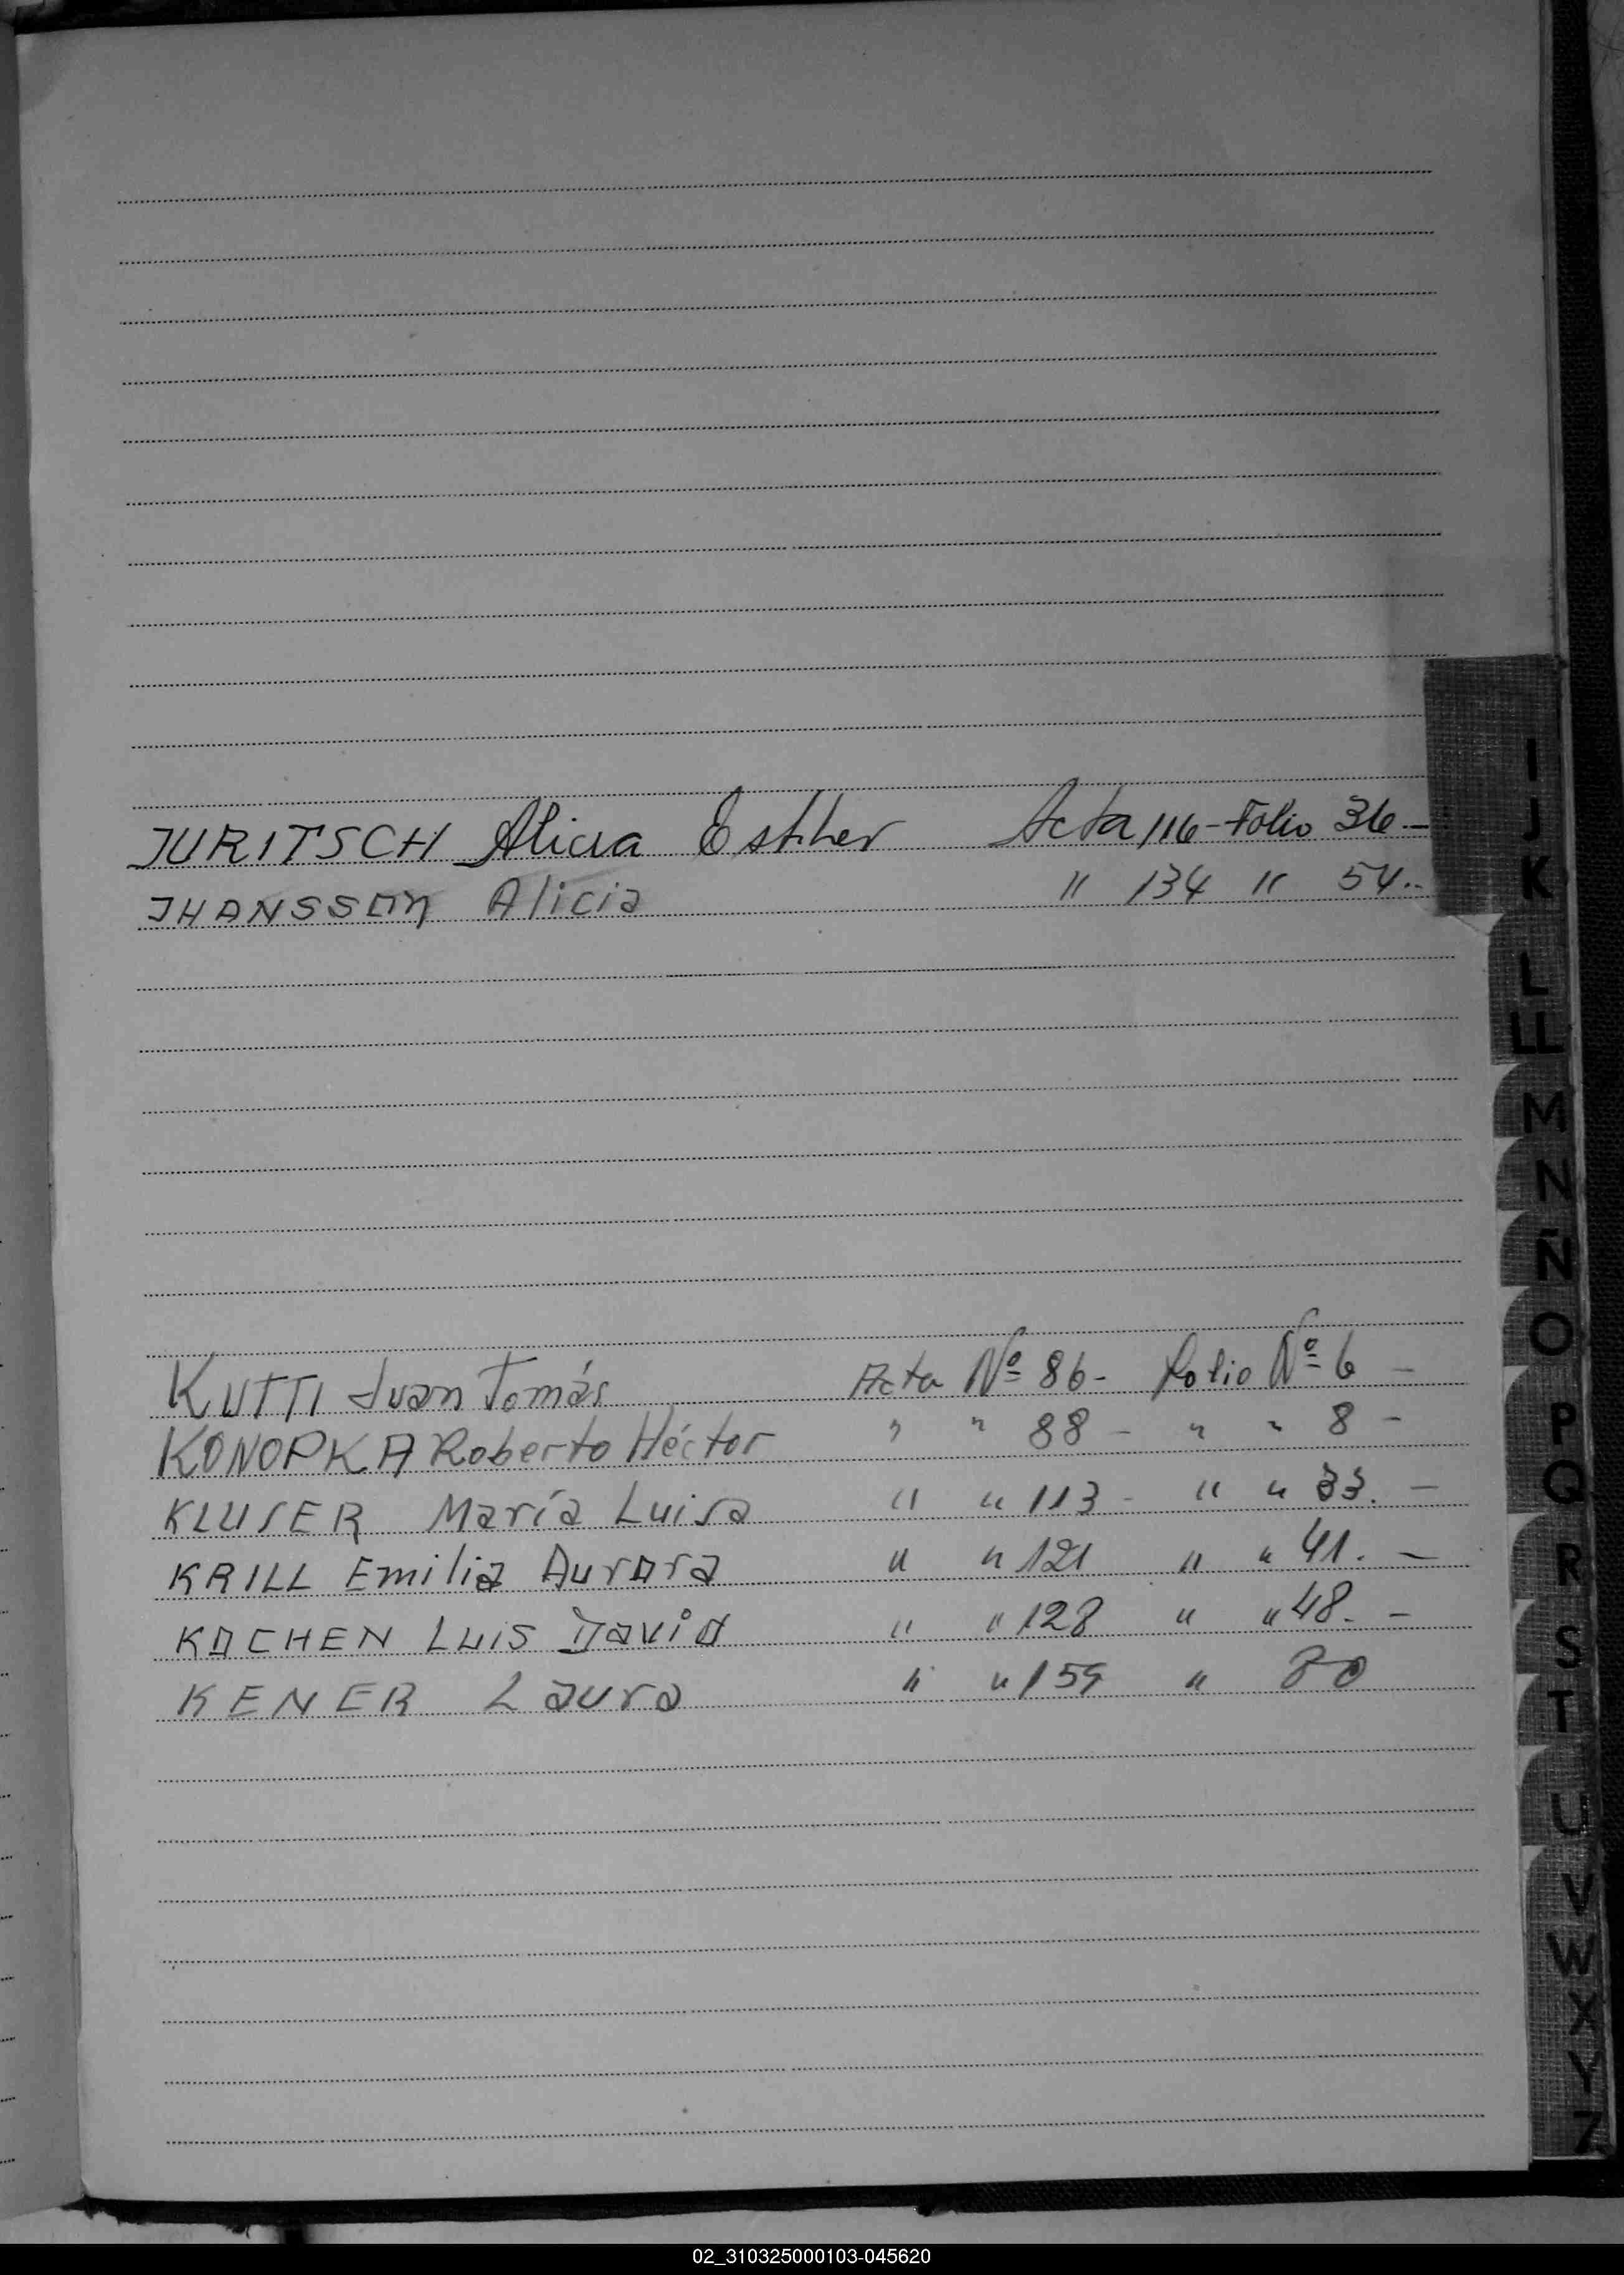 JURITSCH Alicia Esther Acta 116 - Folio 36.-
JHANSSON Alicia " 134 " 54.-
KUTTI Juan Tomás Acta Nº 86- Folio Nº 6 -
KONOPKA Roberto Héctor " " 88 - " " 8 -
KLUSER María Luisa " " 113 - " " 33. -
KRILL Emilia Aurora " " 121 " " 41. -
KOCHEN LUIS DaviD " " 128 " " 48. -
KENER Laura " " 159 " 80
I
J
K
L
LL
M
N
Ñ
O
P
Q
R
S
T
U
V
W
X
Y
Z
02_310325000103-045620